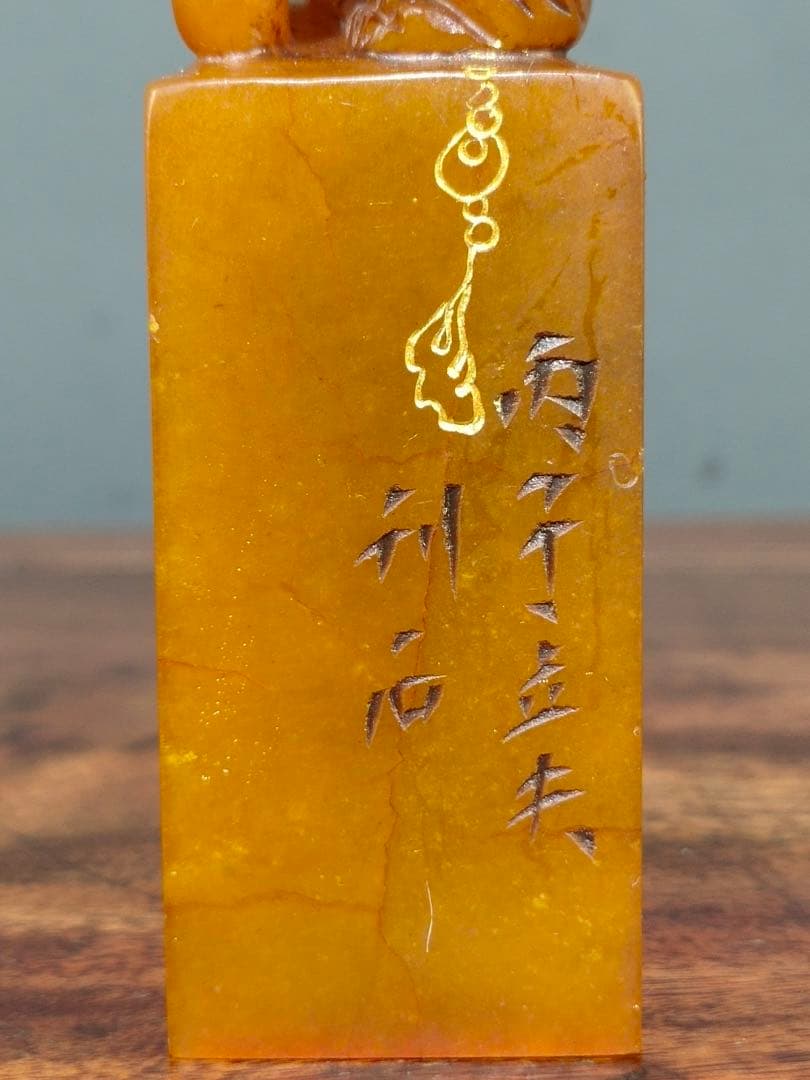 丙子立夫
刊石